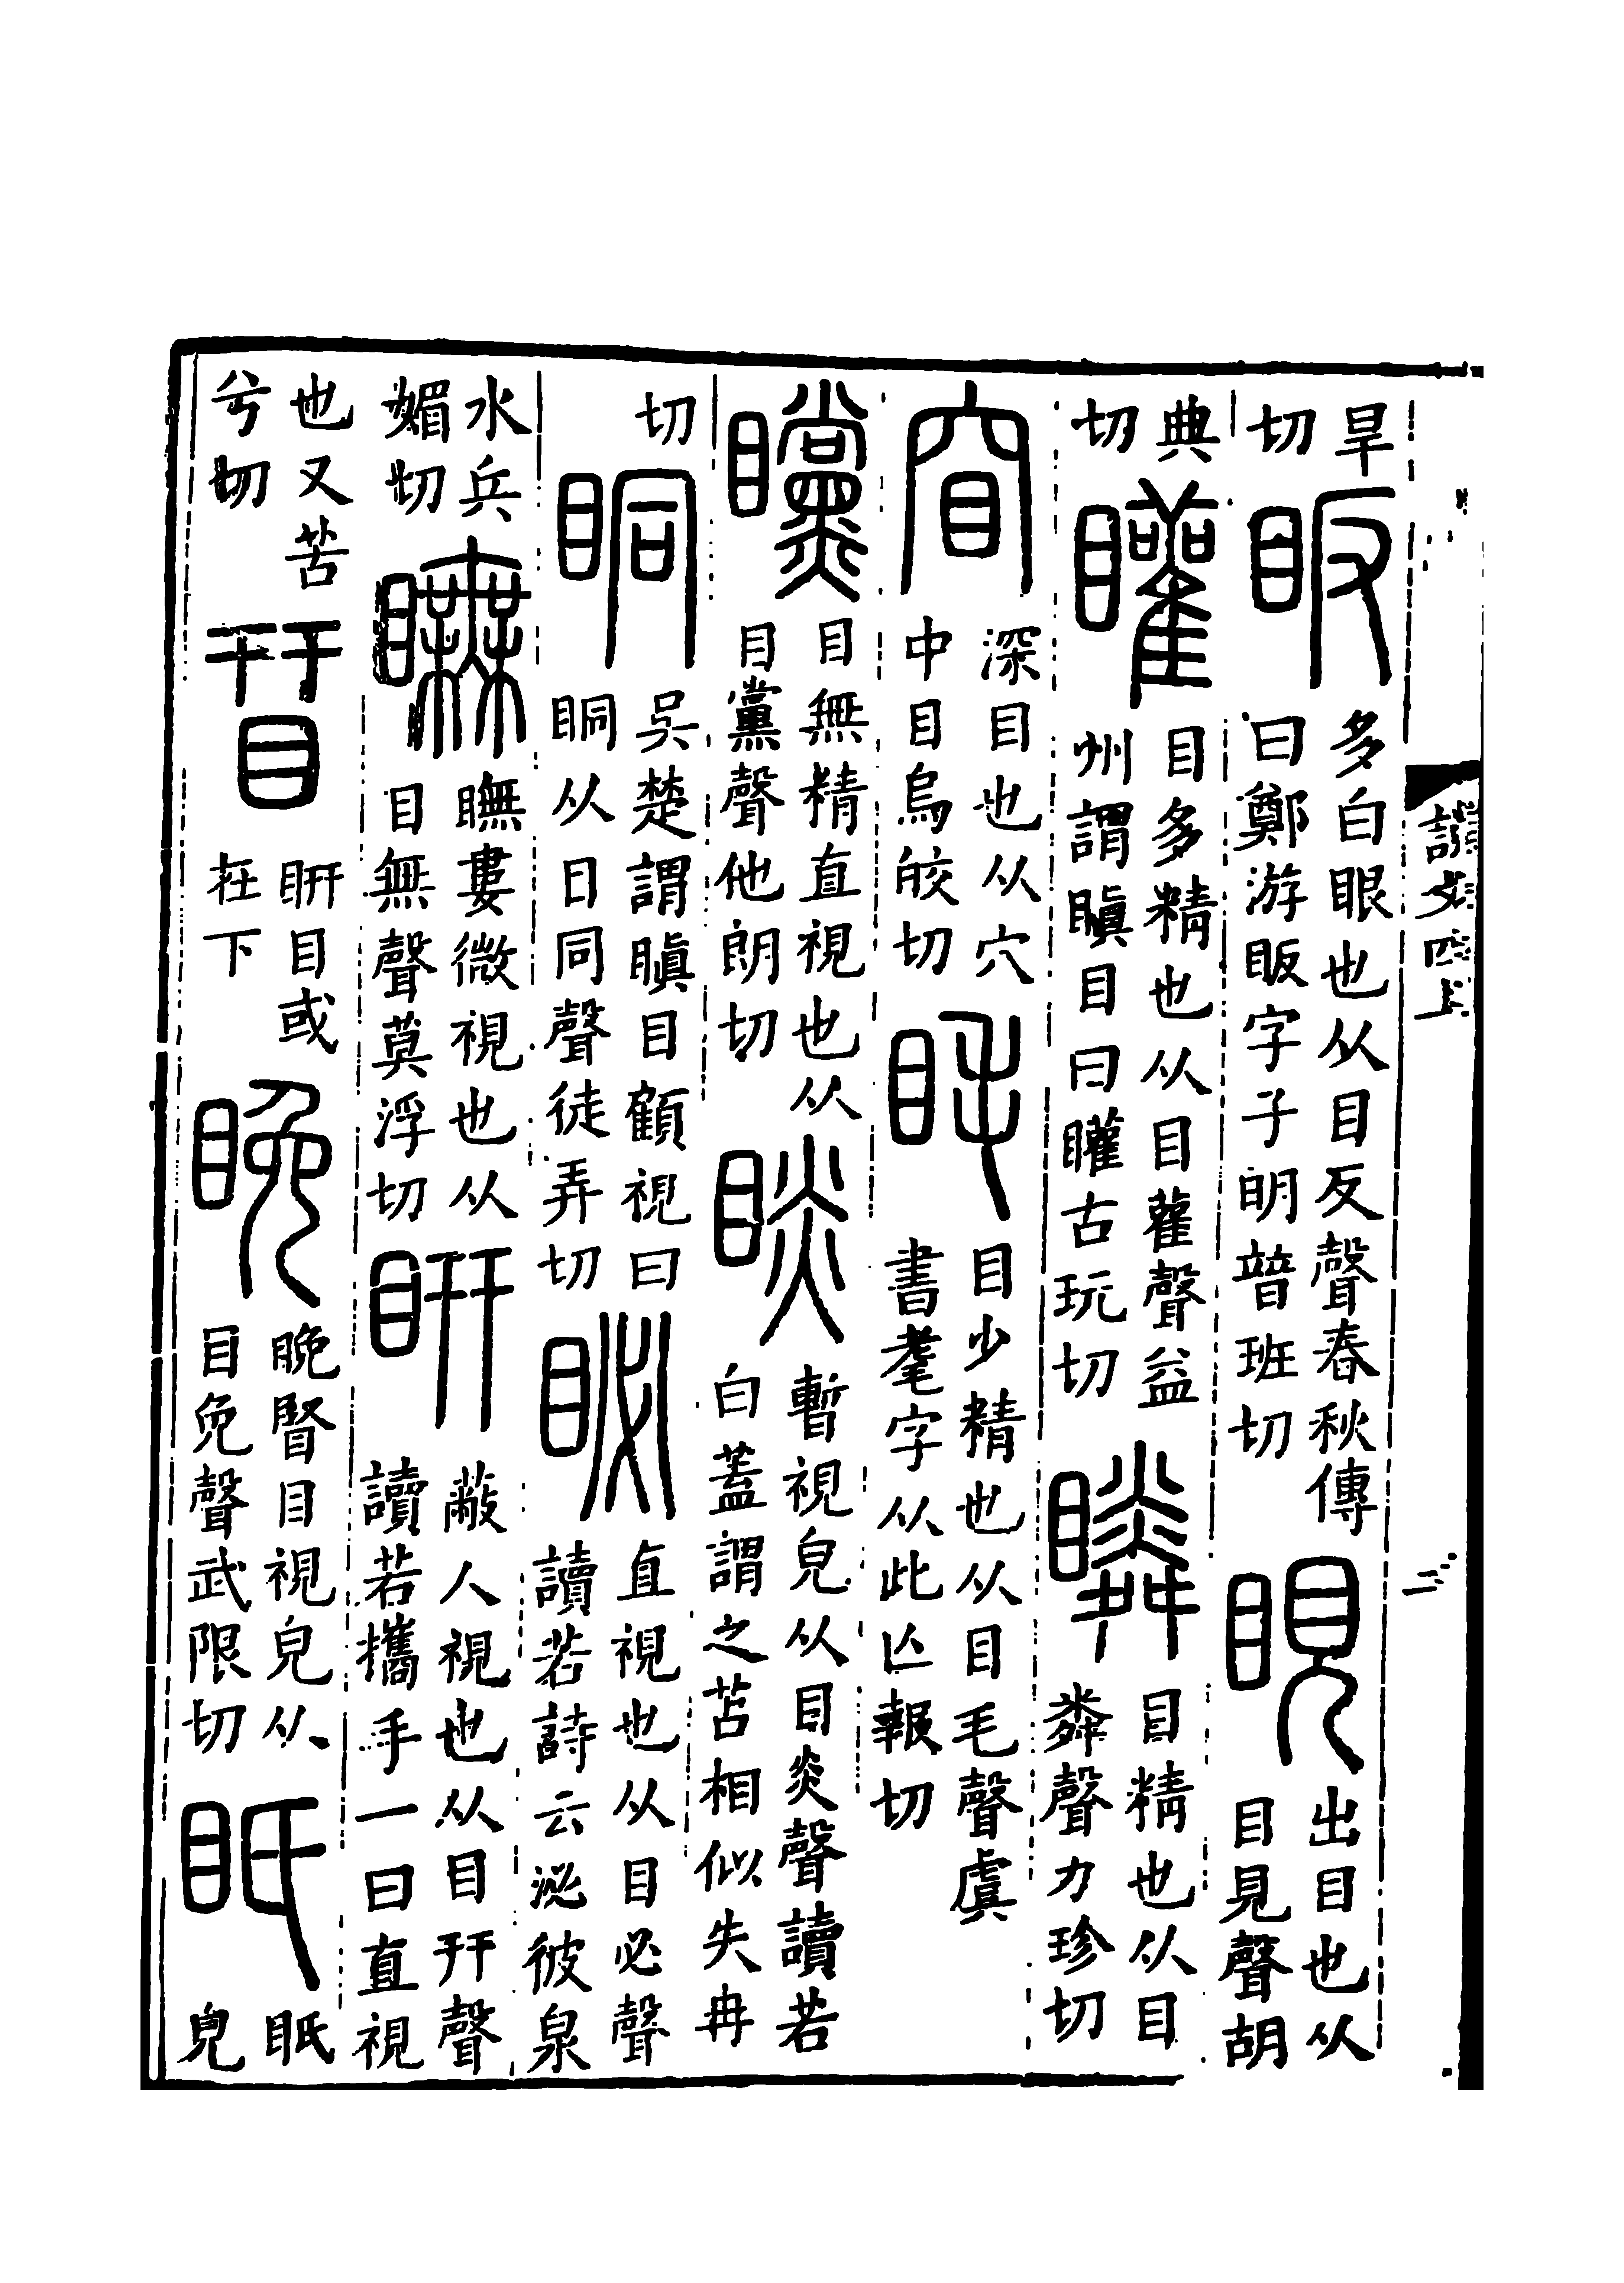 說文四上 二
旱切 眅 多白眼也从目反聲春秋傳曰鄭游眅字子明普班切 睍 出目也从目見聲胡
典切 矔 目多精也从目雚聲益州謂瞋目曰矔古玩切 瞵 目精也从目粦聲力珍切
窅 深目也从穴中目烏皎切 眊 目少精也从目毛聲虞書耄字从此亾報切
矘 目無精直視也从目黨聲他朗切 睒 暫視皃从目炎聲讀若白蓋謂之苫相似失冉
切 眮 吳楚謂瞋目顧視曰眮从日同聲徒弄切 䀣 直視也从目必聲讀若詩云泌彼泉
水兵媚切 瞴 瞴婁微視也从目無聲莫浮切 䀘 蔽人視也从目幵聲讀若攜手一曰直視
也又苦兮切 䀘 䀘目或在下 睌 睌賢目視皃从目免聲武限切 眂 眂皃